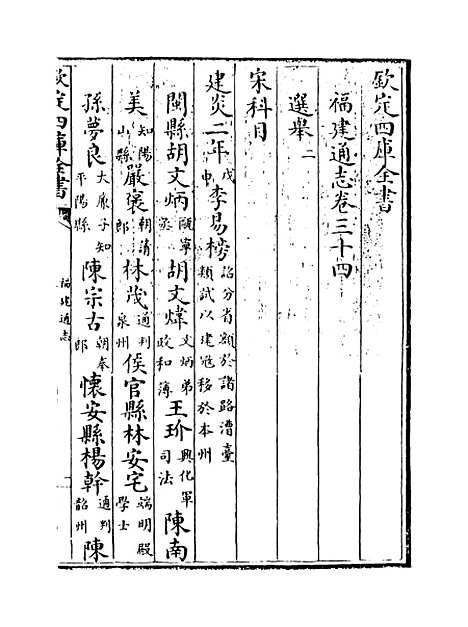 欽定四庫全書
福建通志卷三十四
選舉二
宋科目
建炎二年戊申李易榜詔分省額於諸路漕臺類試以建寇移於本州
閩縣胡文炳甌寧丞胡文煒文炳弟政和簿王玠興化軍司法陳南
美知陽山縣嚴褒朝請郎林茂通判泉州侯官縣林安宅端明殿學士
孫夢良大廉子知平陽縣陳宗古朝奉郎懷安縣楊幹通判韶州陳
欽定四庫全書
福建通志